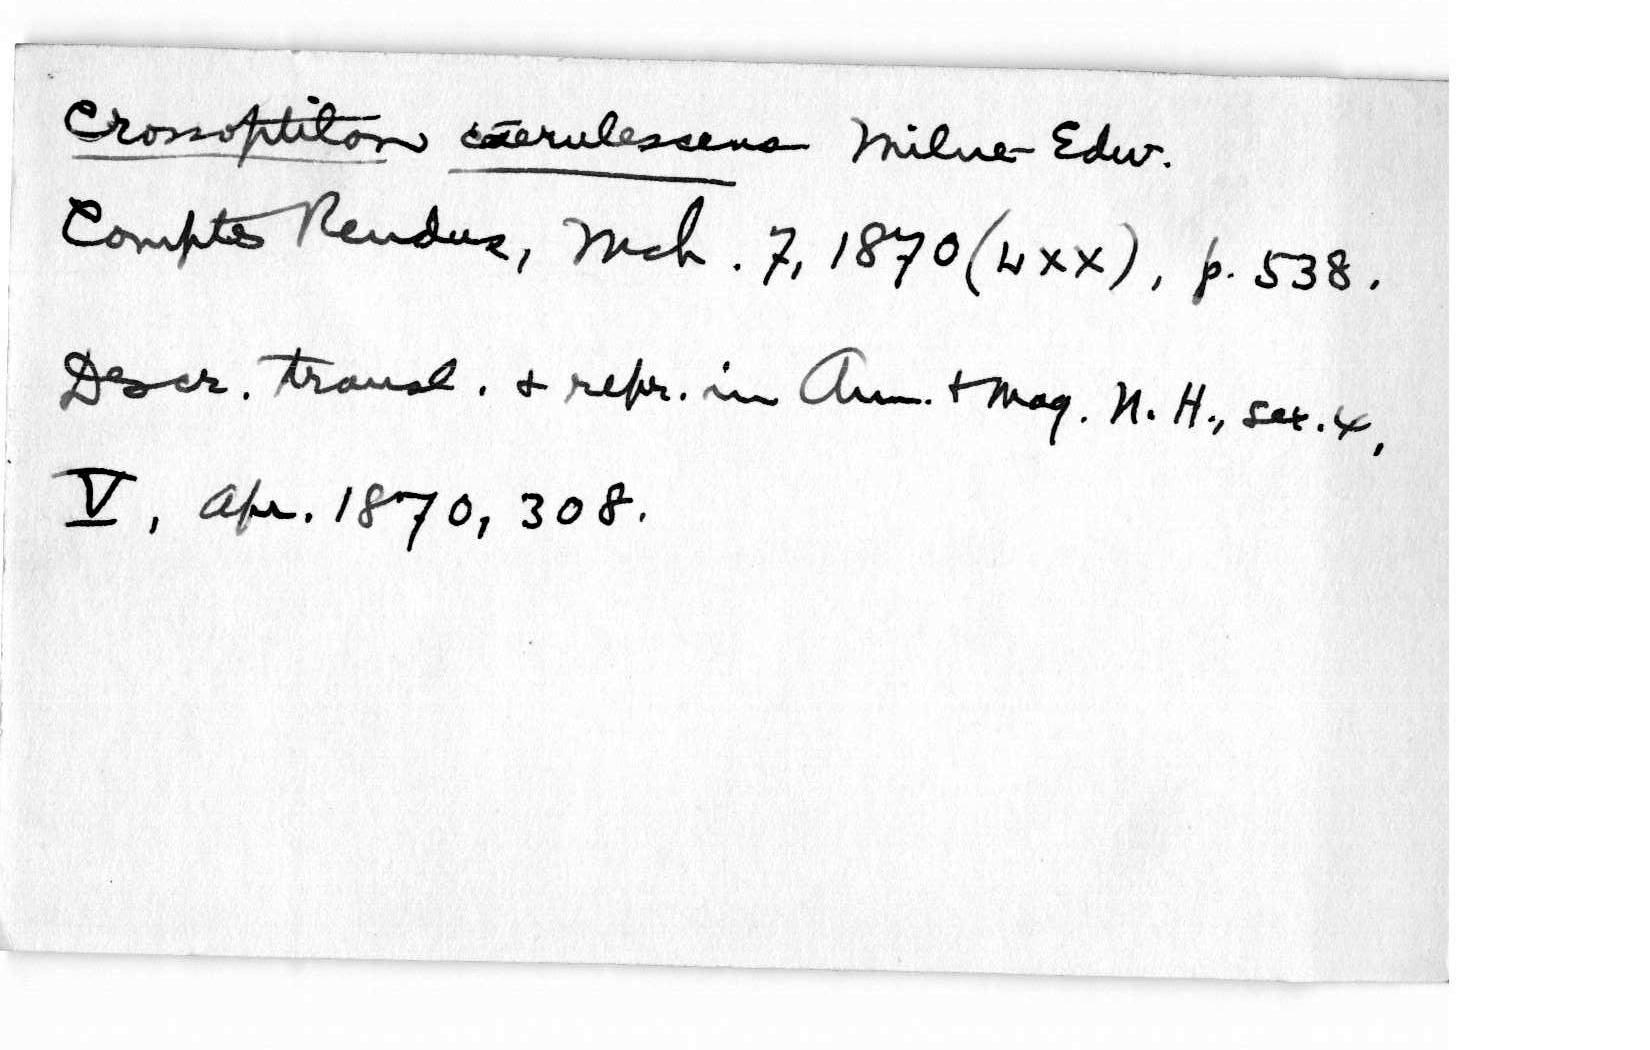 Crossoptilon caerulescens Milne-Edw.
Comptes Rendus, Mch. 7, 1870 (LXX), p. 538.
Descr. transl. & repr. in Ann. & Mag. N. H., ser. 4,
V, Apr. 1870, 308.